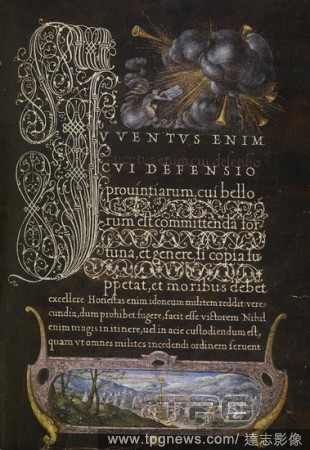 IVVENTVS ENIM
CVI DEFENSIO
prouintiarum, cui bello
rum est committenda for
tuna, et genere si copia su
ppetat, et moribus debet
excellere Honestas enim idoneum militem reddit: vere
cundia, dum prohibet fugere, facit esse victorem Nihil
enim magis in itinere, uel in acie custodiendum est,
quam vt omnes milites incedendi ordinem seruent
TPG
www.tpgnews.com/ 達志影像